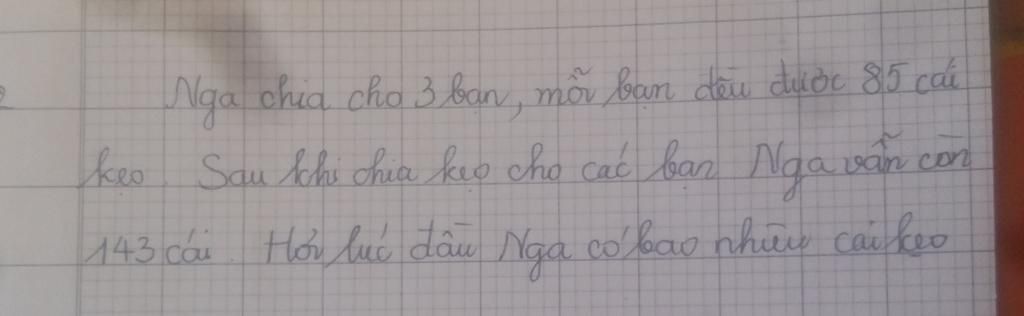 Nga chia cho 3 bạn, mỗi bạn đều được 85 cái
kẹo. Sau khi chia kẹo cho các bạn Nga vẫn còn
143 cái. Hỏi lúc đầu Nga có bao nhiêu cái kẹo